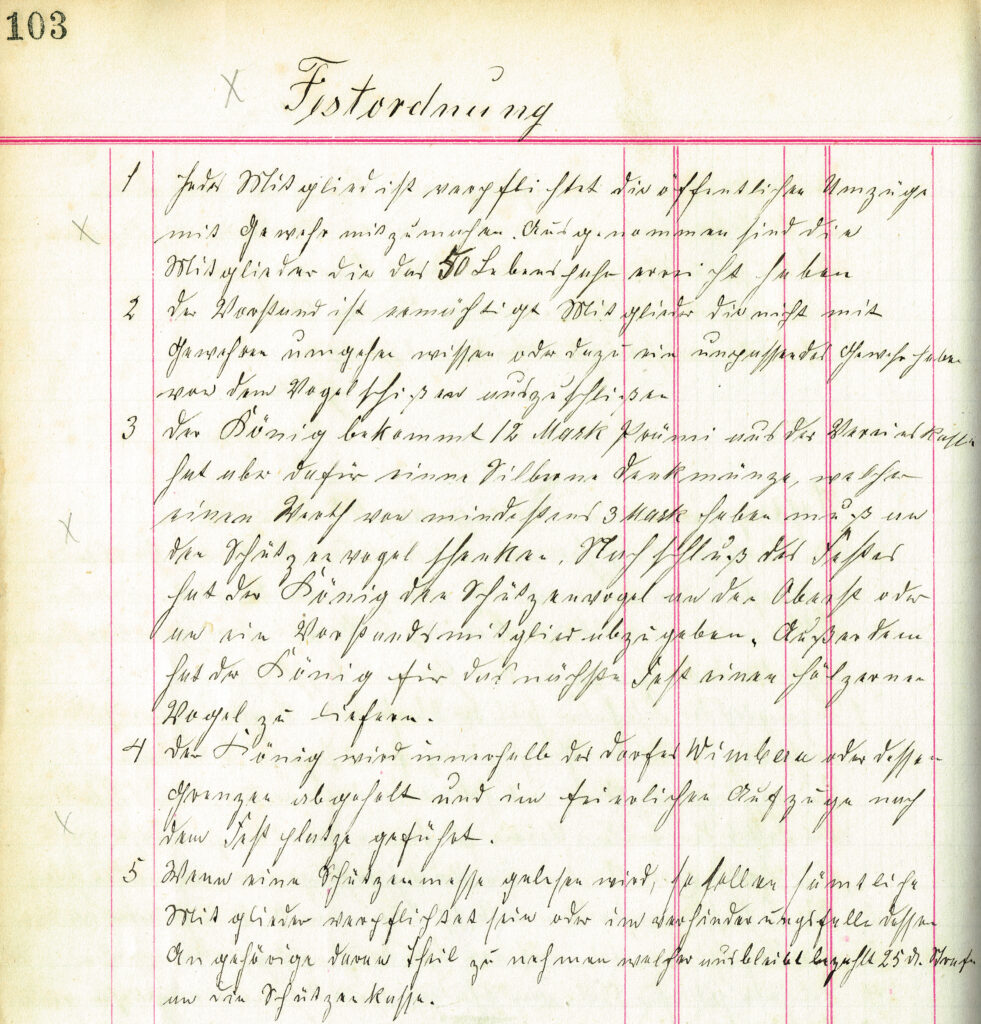 103
Festordnung
1 Jedes Mitglied ist verpflichtet die öffentlichen Umzüge
mit Gewehr mitzumachen. Ausgenommen sind die
Mitglieder die das 50 Lebensjahr erreicht haben
2 Der Vorstand ist ermächtigt Mitglieder die nicht mit
Gewehren umgehen wissen oder dazu ein unpassendes Gewehr haben
von dem Vogelschißen auszuschlißen
3 Der König bekommt 12 Mark Prämi aus der Vereinskasse
hat aber dafür einne Silberne Denkmünze, welcher
einen Werth von mindestens 3 Mark haben muß an
den Schützenvogel schenken. Nach schluß des Festes
hat der König den Schützenvogel an den Oberst oder
an ein Vorstandsmitglied abzugeben. Außerdem
hat der König für das nächste Fest einen hölzernen
Vogel zu liefern.
4 Der König wird innerhalb des Dorfes Wimbern oder dessen
Grenzen abgeholt und im feierlichen Aufzuge nach
dem Festplatze geführt.
5 Wenn eine Schützenmesse gelesen wird, so sollen sämtliche
Mitglieder verpflichtet sein oder im verhinderungsfalle dessen
Angehörige daran Theil zu nehmen welcher ausbleibt bezahlt 25 d. Strafe
an die Schützenkasse.